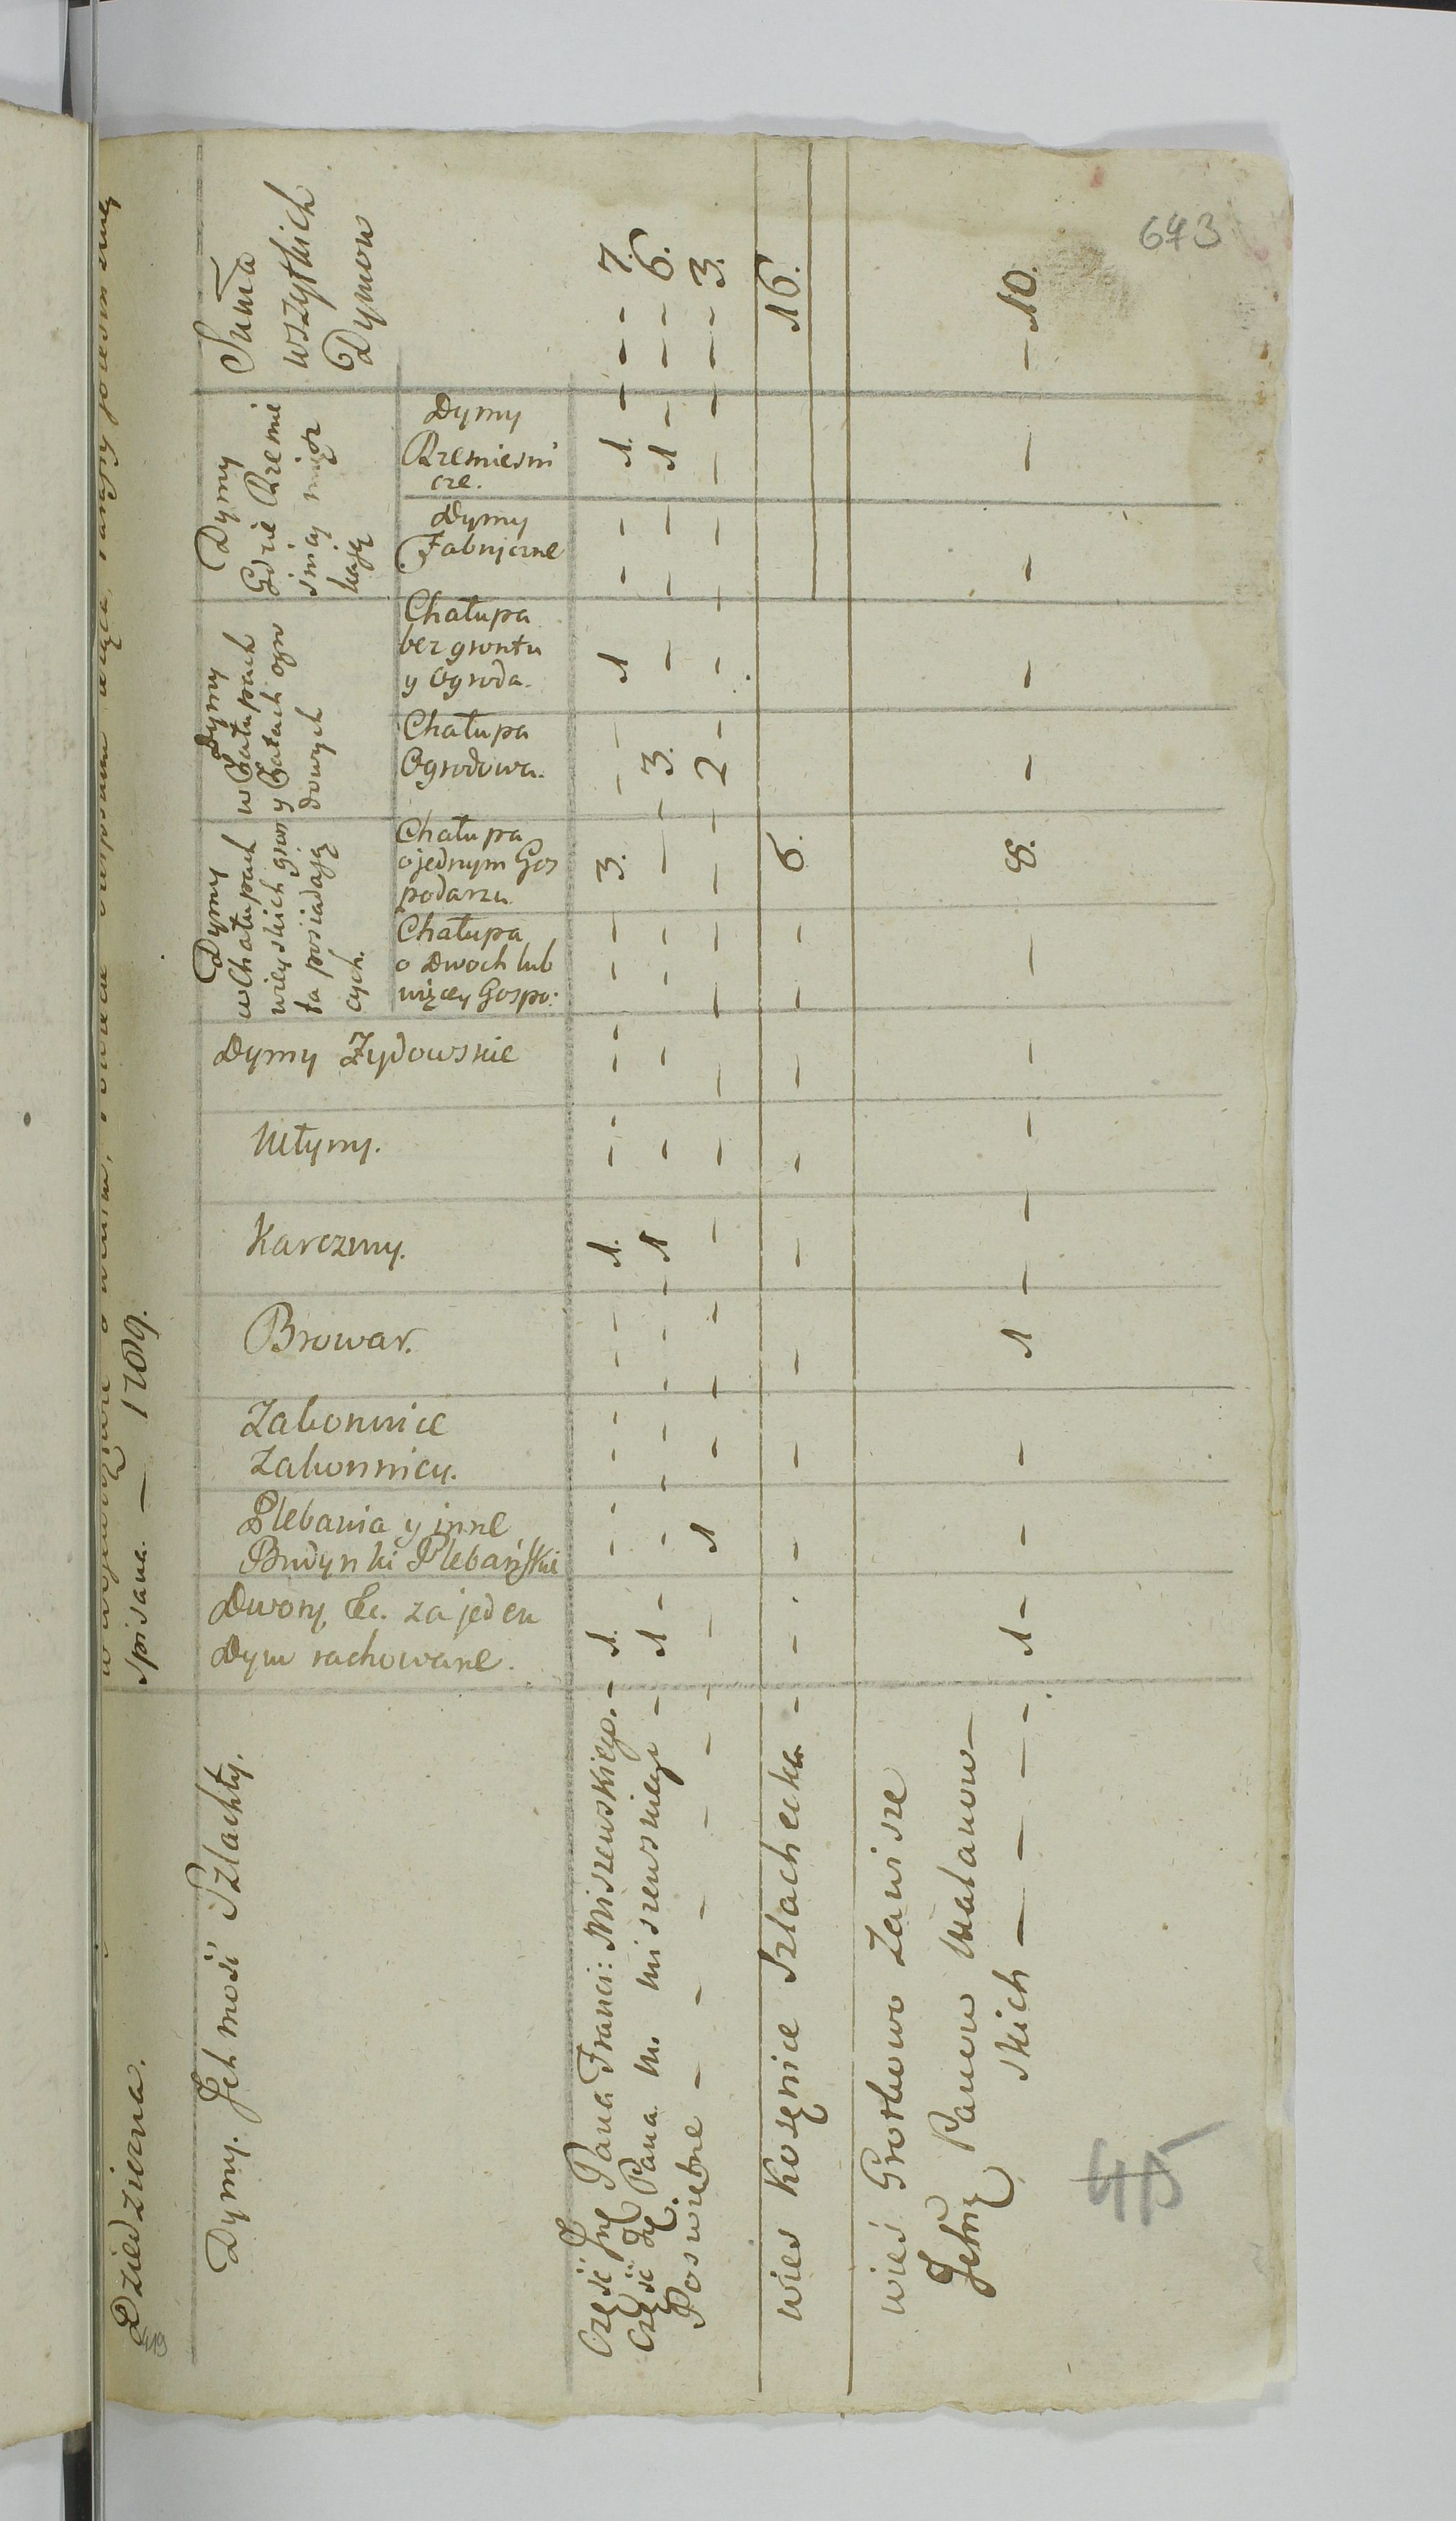 643
spisana. — 1789.
Dziedzierna.
Dymy. Jch mośċ Szlachty.
Dwory, &c. za jeden
Dym rachowane.
Plebania y inne
Budynki Plebańskie
Zakonnice
Zakonnicy.
Browar.
Karczmy.
Młyny.
Dymy Zydowskie
Dymy
w Chałupach
wieyskich gron
ta posiadają
cych.
Chałupa
o Dwoch lub
więcey Gospo:
Chałupa
o jednym Gos
podarzu
Dymy
w Chałupach
y Chatach ogro
dowych
Chałupa
Ogrodowa.
Chałupa
bez grontu
y Ogroda.
Dymy
Gdzie Rzemie
śnicy miesz
kają
Dymy
Fabryczne
Dymy
Rzemiesni
cze.
Suma
wszytkich
Dymow
Część Pana Franci: Miszewskiego. – 1. – – – – – – 1. – – – – 3. – – 1 – – 1. – – – 7.
Część Pana M. Miszewskiego – 1 – – – – – – 1 – – – – – – 3. – – – 1 – – – 6.
Poswietne – – – – – – – – 1 – – – – – – – – – 2 – – – – – – – – 3.
16.
wies Kosęnice Szlachecka – – – – – – – – – – – 6.
wieś Grotkowo Zawisze
Jchmć Panow Małanow –
skich – – – – – 1 – – – 1 – – – – – 8. – – – – – 10.
45